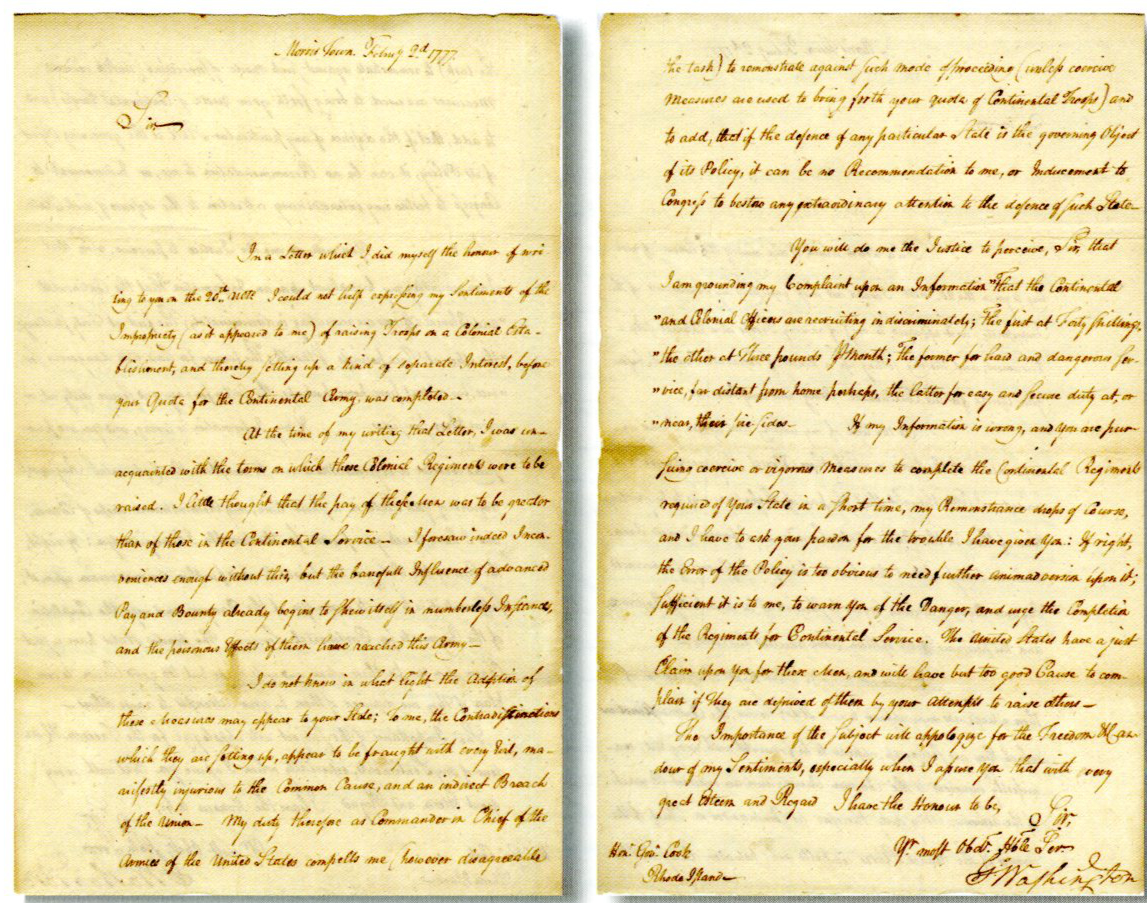 Morris Town Febuy 2d. 1777.
Sir
In a Letter which I did myself the honour of wri-
ting to you on the 20th. Ulto I could not help expressing my Sentiments of the
Impropriety (as it appeared to me) of raising Troops on a Colonial Esta-
blishment, and thereby setting up a kind of separate Interest, before
your Quota for the Continental Army was completed—
At the time of my writing that Letter, I was un-
acquainted with the terms on which these Colonial Regiments were to be
raised. I little thought that the pay of these Men was to be greater
than of those in the Continental Service— I foresaw indeed Incon-
veniences enough without this, but the banefull Influence of advanced
Pay and Bounty already begins to shew itself in numberless Instances,
and the poisonous Effects of them have reached this Army—
I do not know in what light the Adoption of
these Measures may appear to your State; To me, the Contradistinctions
which they are setting up, appear to be fraught with every Evil, ma-
nifestly injurious to the Common Cause, and an indirect Breach
of the Union— My duty therefore as Commander in Chief of the
Armies of the United States compells me (however disagreeable
the task) to remonstrate against such mode of proceeding (unless coercive
Measures are used to bring forth your quota of Continental Troops) and
to add, that if the defence of any particular State is the governing Object
of its Policy, it can be no Recommendation to me, or Inducement to
Congress to bestow any extraordinary attention to the defence of such State—
You will do me the Justice to perceive, Sir, that
I am grounding my Complaint upon an Information "That the Continental
"and Colonial Officers are recruiting indiscriminately; The first at Forty shillings,
"the other at Three pounds ⅌ Month; The former for hard and dangerous Ser-
"vice, far distant from home perhaps, the latter for easy and secure duty at, or
"near, their fire sides— If my Information is wrong, and you are pur-
suing coercive or vigorous Measures to complete the Continental Regiments
required of Your State in a short time, my Remonstrance drops of Course,
and I have to ask your pardon for the trouble I have given You: If right,
the Error of the Policy is too obvious to need further animadversion upon it;
Sufficient it is to me, to warn you of the Danger, and urge the Completion
of the Regiments for Continental Service. The United States have a just
Claim upon You for these Men, and will have but too good Cause to com-
plain if They are deprived of them by your attempts to raise others—
The Importance of the Subject will appologize for the Freedom & Can-
dour of my Sentiments, especially when I assure You that with every
great Esteem and Regard I have the Honour to be,
Sir,
Yr. most Obdt. Hble Ser
Go Washington
Hon. Govr. Cook
Rhode Island—